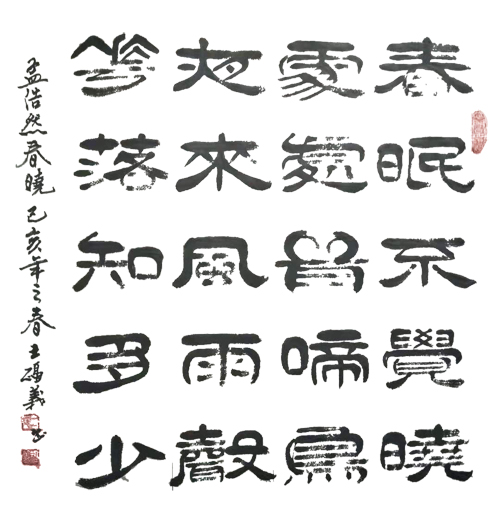 春眠不覺曉
處處聞啼鳥
夜來風雨聲
花落知多少
孟浩然春曉 己亥年之春 王義書